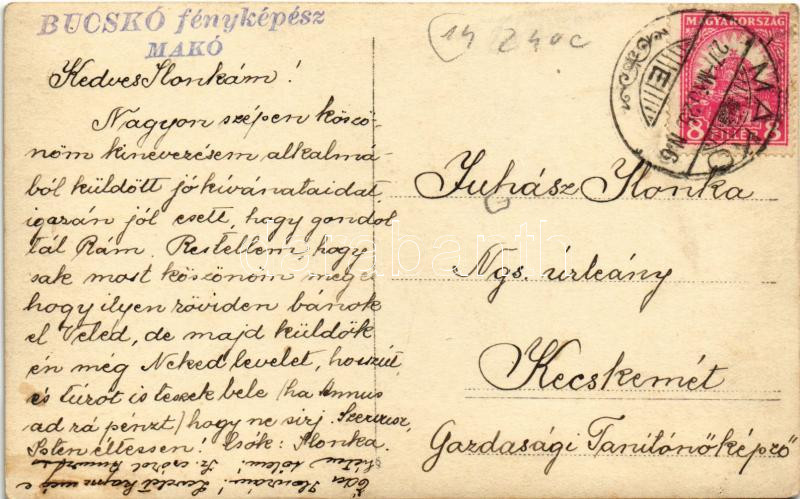 BUCSKÓ fényképész
MAKÓ
14 240c
MAGYARORSZÁG
8 FILLÉR 8
MAKÓ
E
Kedves Ilonkám!
Nagyon szépen köszö-
nöm kinevezésem alkalmá-
ból küldött jókívánataidat,
igazán jól esett, hogy gondol
tál Rám. Restellem, hogy
sak most köszönöm meg és
hogy ilyen röviden bánok
el Veled, de majd küldök
én még Neked levelet, hosszút,
és túrót is teszek bele /ha Annus
ad rá pénzt/ hogy ne sírj. Szervusz,
Isten éltessen! Csók: Ilonka.
Juhász Ilonka
Ngs. úrleány
Kecskemét
Gazdasági Tanítónőképző
darabanth